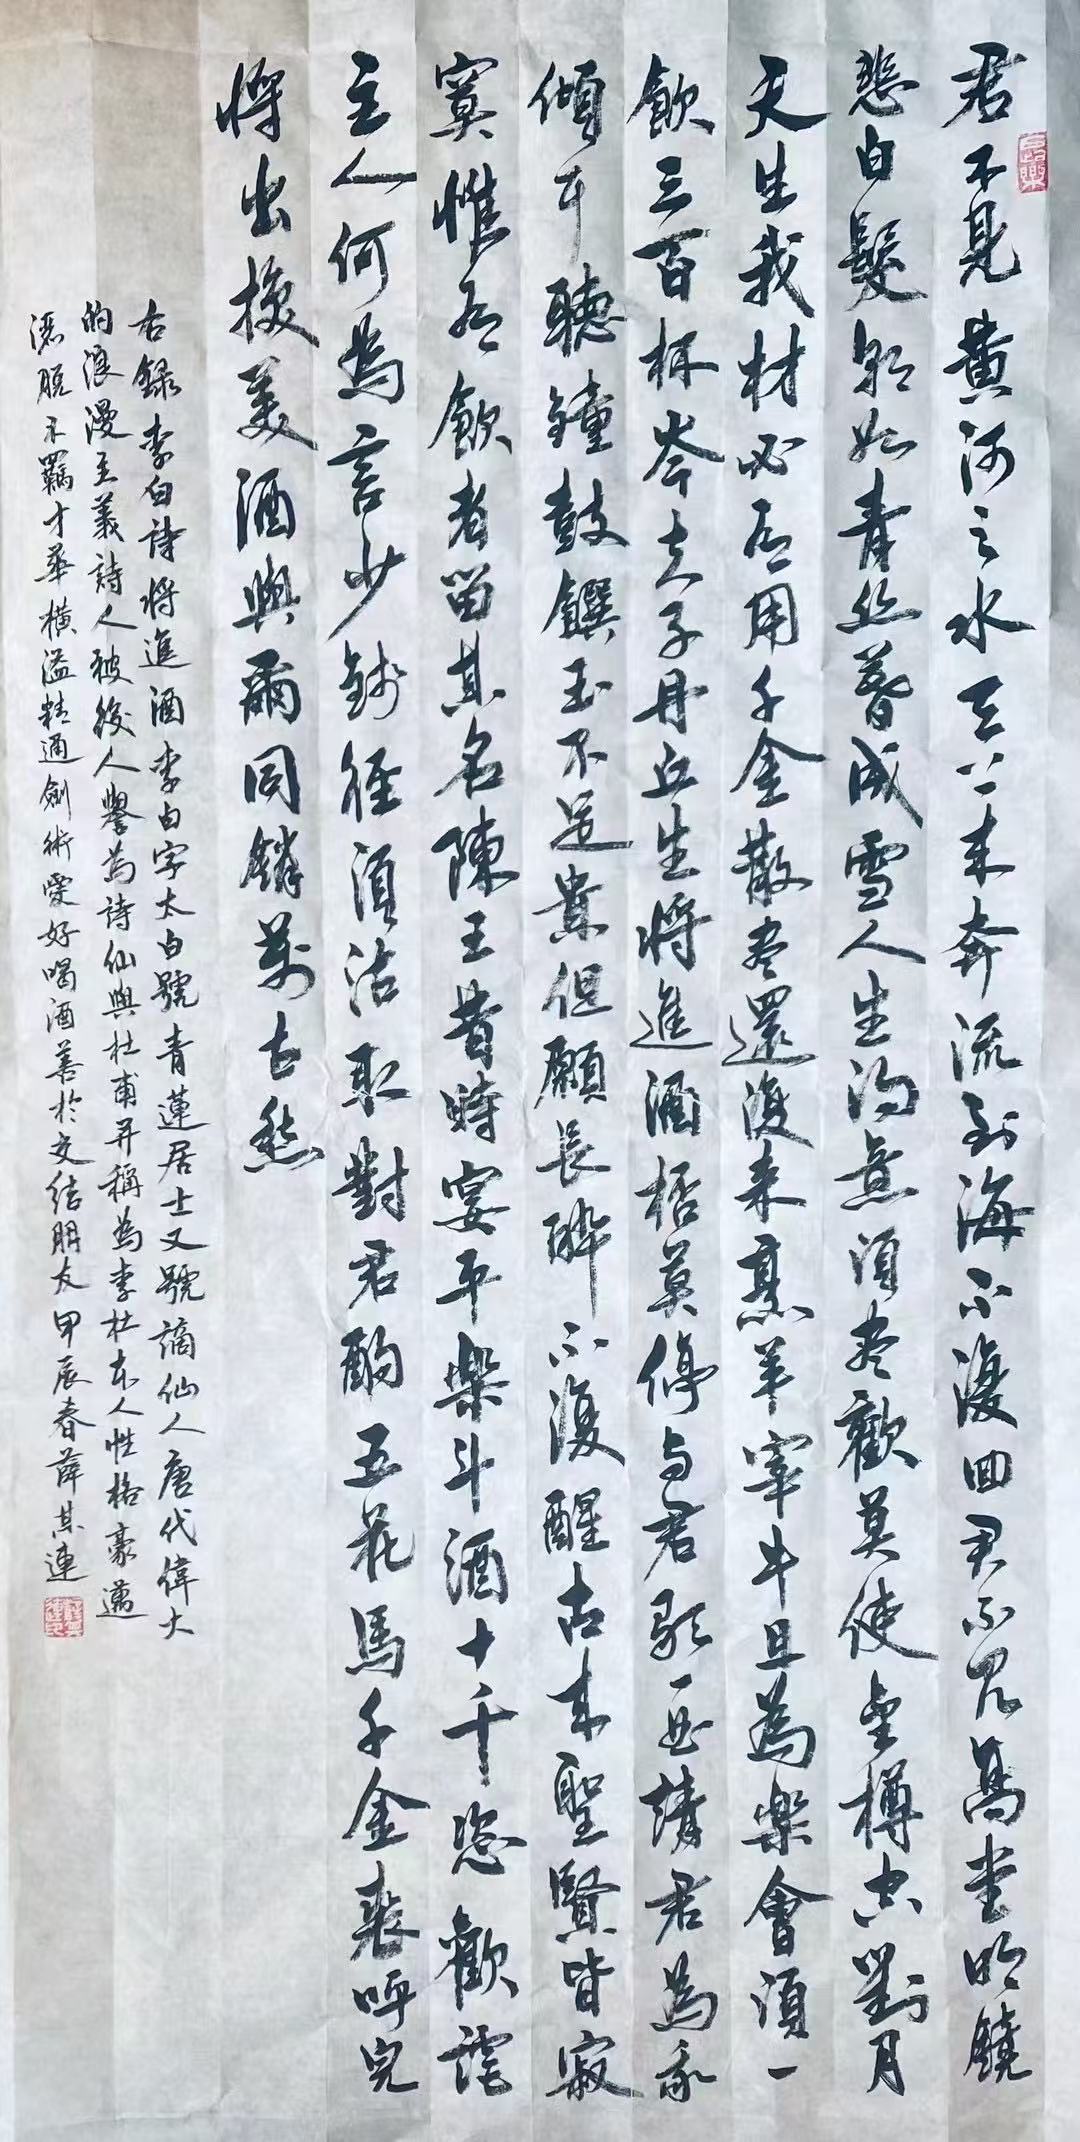 君不見黄河之水天上来奔流到海不復回君不見高堂明鏡
悲白髮朝如青丝暮成雪人生得意須盡歡莫使金樽空對月
天生我材必有用千金散盡還復来烹羊宰牛且為樂會須一
飲三百杯岑夫子丹丘生将進酒杯莫停与君歌一曲請君為我
傾耳聽鐘鼓饌玉不足貴但願長醉不復醒古来聖賢皆寂
寞惟有飲者留其名陳王昔時宴平樂斗酒十千恣歡謔
主人何為言少錢徑須沽取對君酌五花馬千金裘呼兒
将出換美酒與爾同銷萬古愁
右録李白詩将進酒李白字太白號青蓮居士又號謫仙人唐代偉大
的浪漫主義詩人被後人譽為詩仙與杜甫并稱為李杜本人性格豪邁
灑脱不羈才華横溢精通劍術愛好喝酒善於交结朋友甲辰春薛其連